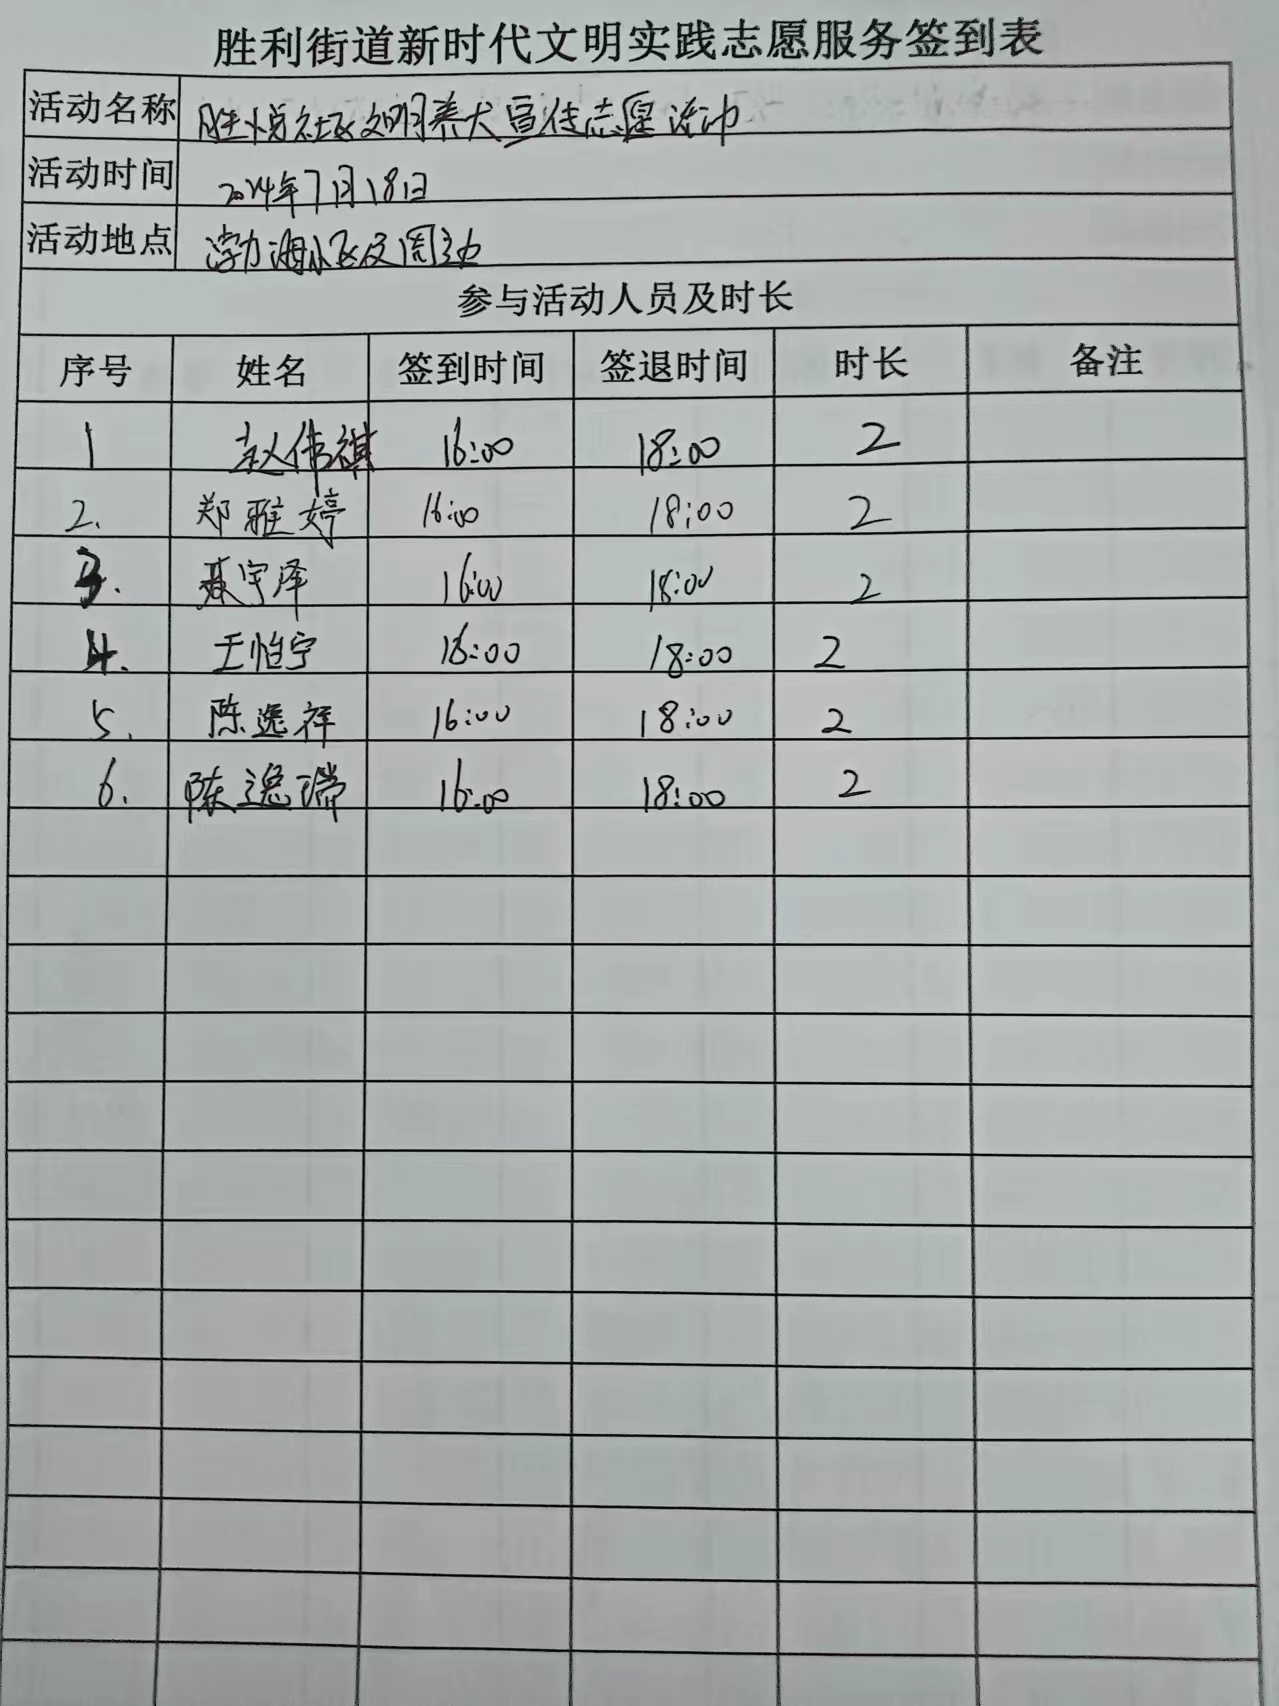 胜利街道新时代文明实践志愿服务签到表
活动名称 胜悦社区文明养犬宣传志愿活动
活动时间 2024年7月18日
活动地点 渤海小区及周边
参与活动人员及时长
序号 姓名 签到时间 签退时间 时长 备注
1 赵伟祺 16:00 18:00 2
2. 郑雅婷 16:00 18:00 2
3. 聂宇泽 16:00 18:00 2
4. 王怡宁 16:00 18:00 2
5. 陈逸祥 16:00 18:00 2
6. 陈逸瑞 16:00 18:00 2